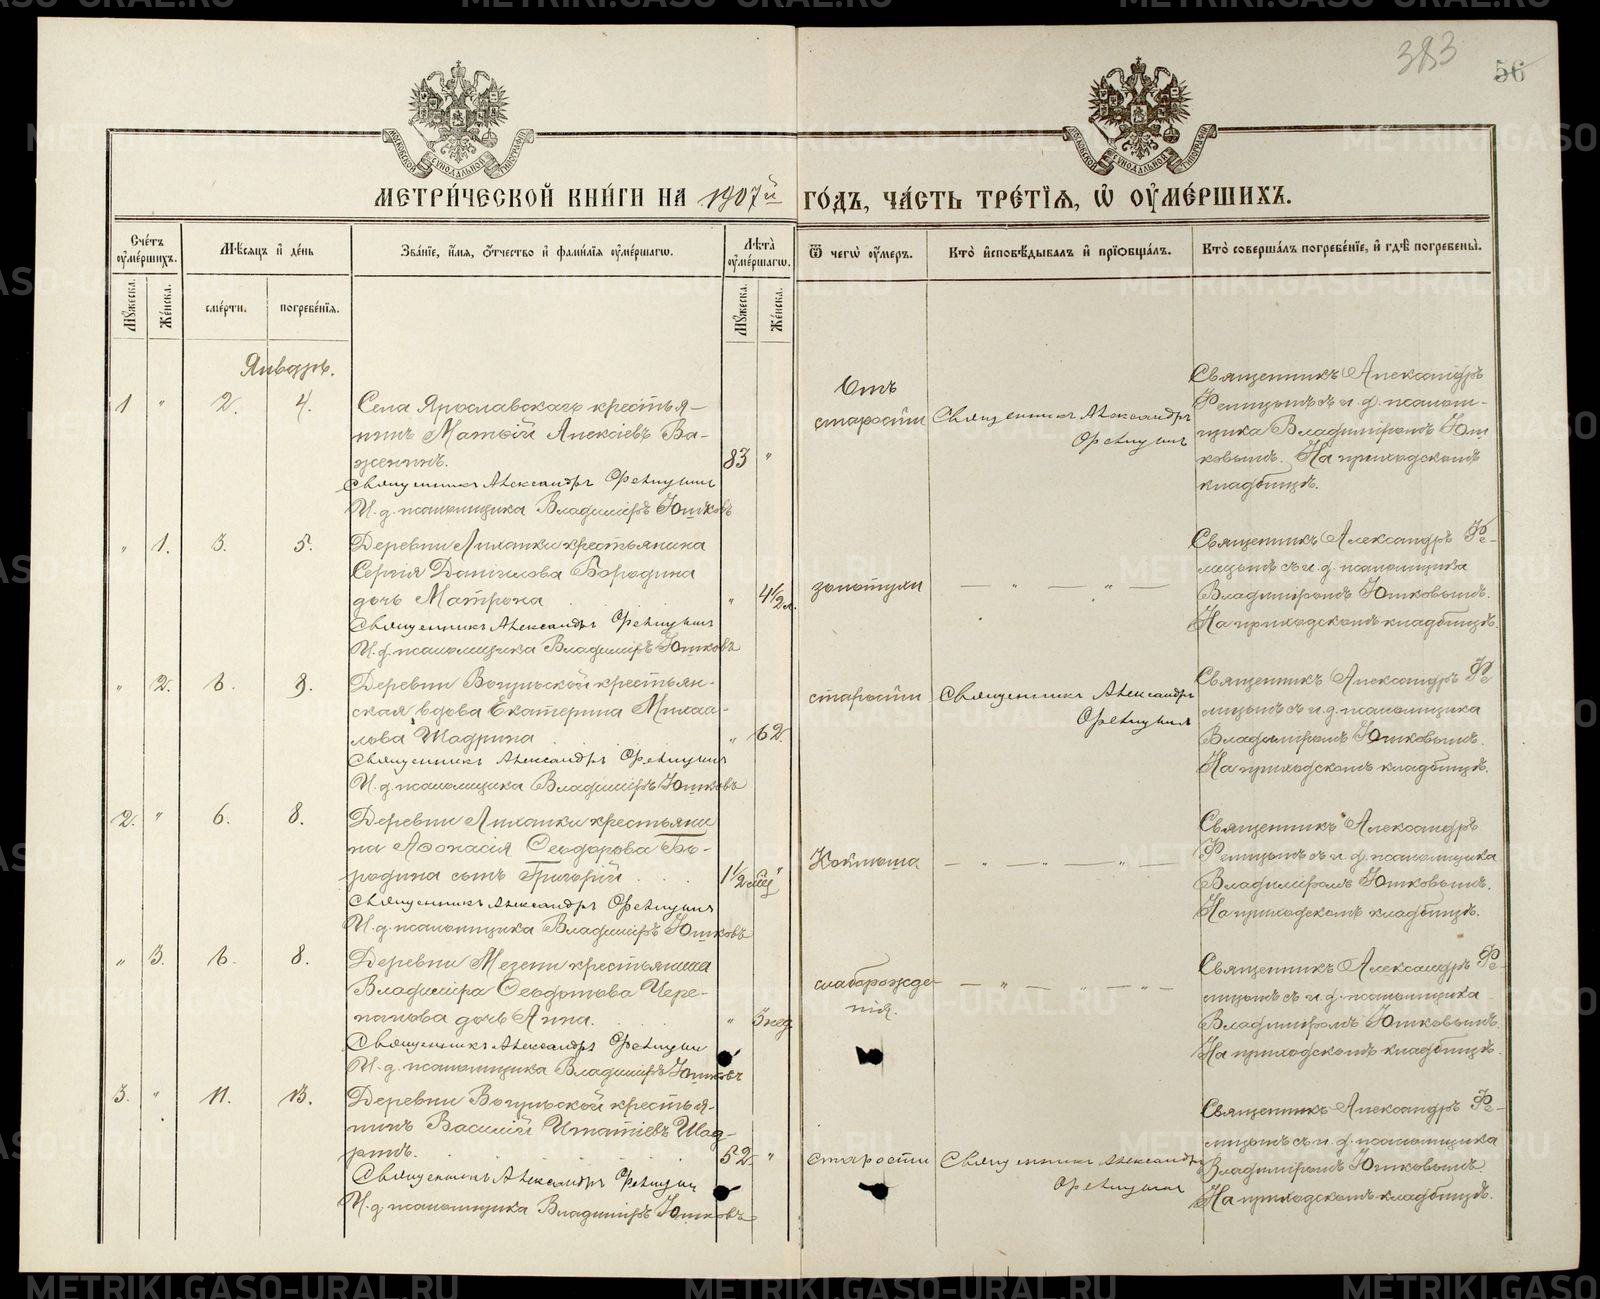 383
56
МЕТРИ́ЧЕСКОЙ КНИ́ГИ НА 1907й ГО́ДЪ, ЧА́СТЬ ТРЕ́ТІѦ, Ѡ҆ ОУ҆МЕ́РШИХЪ.
Сче́тъ оу҆ме́ршихъ.
Мꙋ́жеска.
Же́нска.
Мѣ́сѧцъ и҆ де́нь
сме́рти.
погребе́нїѧ.
Зва́нїе, и҆́мѧ, ѻ҆́тчество и҆ фами́лїѧ оу҆ме́ршагѡ.
Лѣ́та оу҆ме́ршагѡ.
Мꙋ́жеска.
Же́нска.
Ѿ чегѡ̀ оу҆́меръ.
Кто̀ и҆сповѣ́дывалъ и҆ прїѻбща́лъ.
Кто̀ соверша́лъ погребе́нїе, и҆ гдѣ̀ погребены̀.
Январь.
1 " 2. 4.
Села Ярославскаго крестья-
нинъ Матѳій Алексіевъ Ва-
женинъ.
83 "
Священникъ Александръ Фелицынъ
И. д. псаломщика Владиміръ Юшковъ
Отъ
старости
Священникъ Александръ
Фелицынъ
Священникъ Александръ
Фелицынъ съ и. д. псалом-
щика Владиміромъ Юш
ковымъ. На приходскомъ
кладбищѣ.
" 1. 3. 5.
Деревни Липанки крестьянина
Сергія Даніилова Бородина
дочь Матрона
" 4½ л.
Священникъ Александръ Фелицынъ
И. д. псаломщика Владиміръ Юшковъ
золотухи
— " — " —
Священникъ Александръ Фе-
лицынъ съ и. д. псаломщика
Владиміромъ Юшковымъ.
На приходскомъ кладбищѣ.
" 2. 6. 8.
Деревни Вогульской крестьян-
ская вдова Екатерина Михаи-
лова Шадрина
" 62.
Священникъ Александръ Фелицынъ
И. д. псаломщика Владиміръ Юшковъ
старости
Священникъ Александръ
Фелицынъ
Священникъ Александръ Фе
лицынъ съ и. д. псаломщика
Владиміромъ Юшковымъ.
На приходскомъ кладбищѣ.
2. " 6. 8.
Деревни Липанки крестьяни
на Аѳанасія Ѳеодорова Бо-
родина сынъ Григорій
1½ мѣс "
Священникъ Александръ Фелицынъ
И. д. псаломщика Владиміръ Юшковъ
— " — " — " —
Священникъ Александръ
Фелицынъ съ и. д. псаломщика
Владиміромъ Юшковымъ.
На приходскомъ кладбищѣ.
" 3. 6. 8.
Деревни Мезени крестьянина
Владиміра Ѳеодотова Чере-
панова дочь Анна.
" 3 нед.
Священникъ Александръ Фелицынъ
И. д. псаломщика Владиміръ Юшковъ
слаборожде-
нія.
— " — " — " —
Священникъ Александръ Фе-
лицынъ съ и. д. псаломщика
Владиміромъ Юшковымъ.
На приходскомъ кладбищѣ.
3. " 11. 13.
Деревни Вогульской крестья-
нинъ Василій Игнатіевъ Шад-
ринъ.
52 "
Священникъ Александръ Фелицынъ
И. д. псаломщика Владиміръ Юшковъ
старости
Священникъ Александръ
Фелицынъ
Священникъ Александръ Фе-
лицынъ съ и. д. псаломщика
Владиміромъ Юшковымъ.
На приходскомъ кладбищѣ.
METRIKI.GASO-URAL.RU